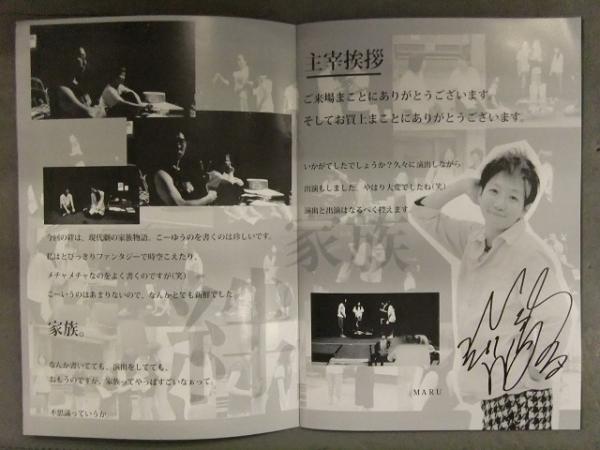 今回の絆は、現代劇の家族物語。こーゆうのを書くのは珍しいです。
私はとびっきりファンタジーで時空こえたり、
メチャメチャなのをよく書くのですが(笑)
こーいうのはあまりないので、なんかとても新鮮でした。
家族。
なんか書いてても、演出をしてても、
おもうのですが、家族ってやっぱすごいなぁって。
不思議っていうか
絆
主宰挨拶
ご来場まことにありがとうございます。
そしてお買上まことにありがとうございます。
いかがでしたでしょうか?久々に演出しながら
出演もしました。やはり大変でしたね(笑)
演出と出演はなるべく控えます。
家族
MARU